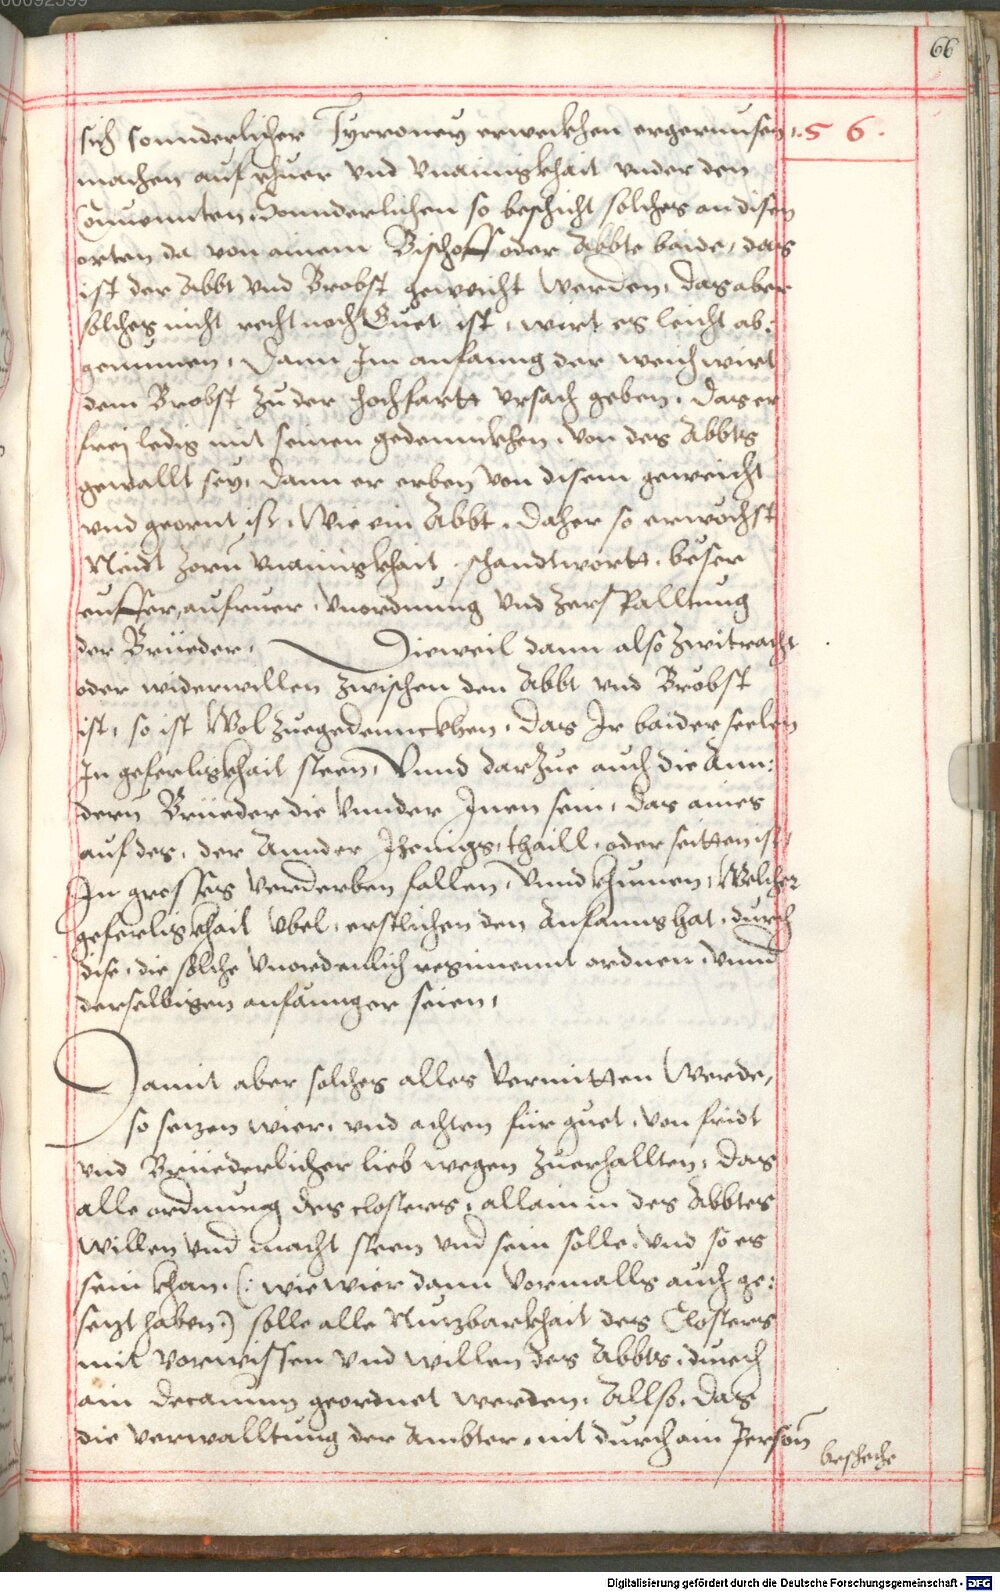 66
56.
sich sonnderlicher Tyrroney erweckhen ergernussen,
machen aufrhuer vnd vnainigkhait vnder den
Conuennten, Sonnderlichen so beschicht solches an disen
orten da von ainem Bischoff oder Abbte baide, das
ist der Abbt vnd Brobst geweicht werden, das aber
solches nicht recht noch Guet ist, wirt es leicht ab:
genumen, Dann Im anfanng der weich wirt
dem Brobst zu der hochfartt vrsach geben, Das er
frei ledig mit seinen gedennckhen, von des Abbts
gewallt sey, dann er erben von disem geweicht
vnd geornt ist, Wie ein Abbt, Daher so erwöchst
Neidt zorn vnainigkhait, schandtwortt, böser
euffer, aufruer, vnordnung vnd Zerspalltung
der Brüeder. Dieweil dann also zwitracht
oder widerwillen zwischen den Abbt vnd Brobst
ist, so ist Wol zuegedennckhen, das Ir baider seelen
In geferligkhait steen, Vnnd darzue auch die Ann:
dern Brüeder die vnnder Inen sein, das aines
auf des, der Annder Ihenigs, thaill, oder seitten ist,
In grosses verderben fallen, Vnnd khumen, Welcher
geferligkhait vbel, erstlichen den Anfanng hat, durch
dise, die solche vnordenlich regimennt ordnen, vnnd
derselbigen anfännger seien,
Damit aber solches alles vermitten werde,
so setzen wier, vnd achten für guet, von fridt
vnd Brüederlicher lieb wegen zuerhallten, das
alle ordnung des closters, allain in des Abbtes
willen vnd macht steen vnd sein solle, vnd so es
sein khan, (: wie wier dann vormalls auch ge:
setzt haben:) solle alle Nutzbarkhait des Closters
mit vorwissen vnd willen des Abbts, durch
ain decanum geordnet werden, Allso, das
die verwalltung der Ambter, nit durch ain Person
beschehe
Digitalisierung gefördert durch die Deutsche Forschungsgemeinschaft - DFG